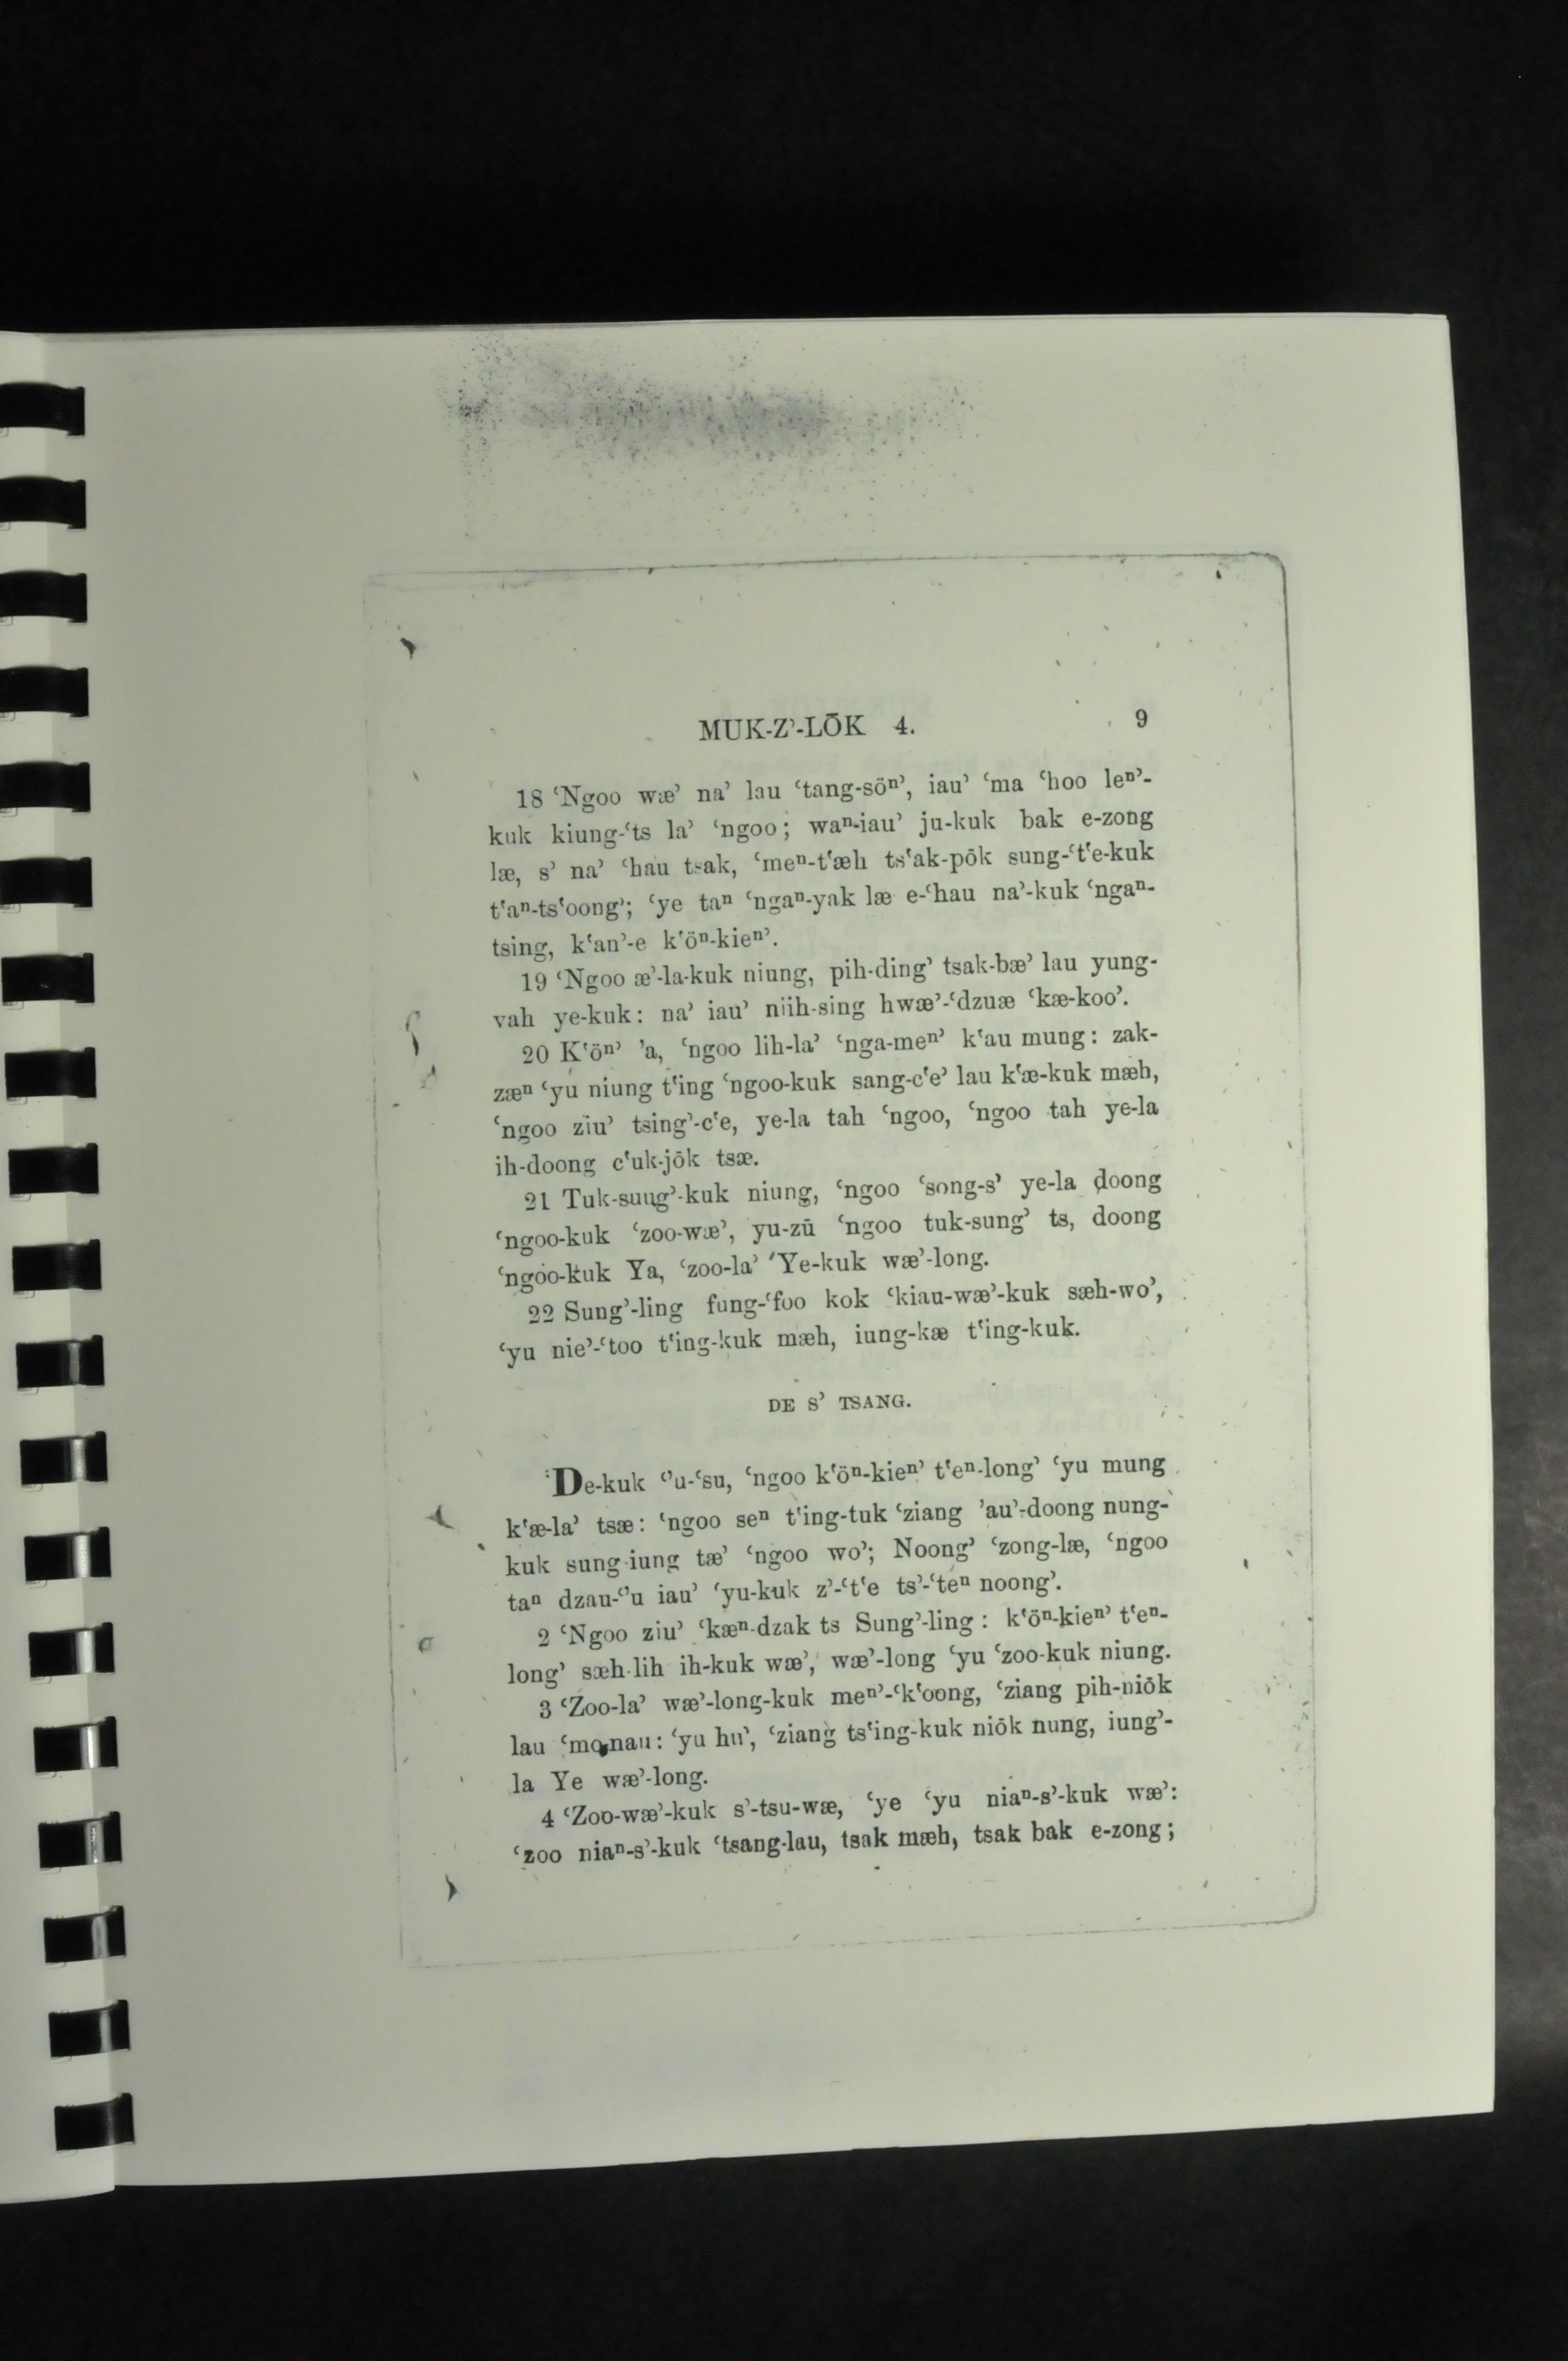 MUK-Z’-LŌK 4. 9
18 ‘Ngoo wæ’ na’ lau ‘tang-söⁿ’, iau’ ‘ma ‘hoo leⁿ’-
kuk kiung-‘ts la’ ‘ngoo; waⁿ-iau’ ju-kuk bak e-zong
læ, s’ na’ ‘hau tsak, ‘meⁿ-t‘æh ts‘ak-pōk sung-‘t‘e-kuk
t‘aⁿ-ts‘oong’; ‘ye taⁿ ‘ngaⁿ-yak læ e-‘hau na’-kuk ‘ngaⁿ-
tsing, k‘an’-e k‘öⁿ-kieⁿ’.
19 ‘Ngoo æ’-la-kuk niung, pih-ding’ tsak-bæ’ lau yung-
vah ye-kuk: na’ iau’ niih-sing hwæ’-‘dzuæ ‘kæ-koo’.
20 K‘öⁿ’ ’a, ‘ngoo lih-la’ ‘nga-meⁿ’ k‘au mung: zak-
zæⁿ ‘yu niung t‘ing ‘ngoo-kuk sang-c‘e’ lau k‘æ-kuk mæh,
‘ngoo ziu’ tsing’-c‘e, ye-la tah ‘ngoo, ‘ngoo tah ye-la
ih-doong c‘uk-jōk tsæ.
21 Tuk-sung’-kuk niung, ‘ngoo ‘song-s’ ye-la doong
‘ngoo-kuk ‘zoo-wæ’, yu-zū ‘ngoo tuk-sung’ ts, doong
‘ngoo-kuk Ya, ‘zoo-la’ ‘Ye-kuk wæ’-long.
22 Sung’-ling fung-‘foo kok ‘kiau-wæ’-kuk sæh-wo’,
‘yu nie’-‘too t‘ing-kuk mæh, iung-kæ t‘ing-kuk.
DE S’ TSANG.
De-kuk ‘’u-‘su, ‘ngoo k‘öⁿ-kieⁿ’ t‘eⁿ-long’ ‘yu mung
k‘æ-la’ tsæ: ‘ngoo seⁿ t‘ing-tuk ‘ziang ’au’-doong nung-
kuk sung-iung tæ’ ‘ngoo wo’; Noong’ ‘zong-læ, ‘ngoo
taⁿ dzau-‘’u iau’ ‘yu-kuk z’-‘t‘e ts’-‘teⁿ noong’.
2 ‘Ngoo ziu’ ‘kæⁿ-dzak ts Sung’-ling: k‘öⁿ-kieⁿ’ t‘eⁿ-
long’ sæh-lih ih-kuk wæ’, wæ’-long ‘yu ‘zoo-kuk niung.
3 ‘Zoo-la’ wæ’-long-kuk meⁿ’-‘k‘oong, ‘ziang pih-niōk
lau ‘mo-nau: ‘yu hu’, ‘ziang ts‘ing-kuk niōk nung, iung’-
la Ye wæ’-long.
4 ‘Zoo-wæ’-kuk s’-tsu-wæ, ‘ye ‘yu niaⁿ-s’-kuk wæ’:
‘zoo niaⁿ-s’-kuk ‘tsang-lau, tsak mæh, tsak bak e-zong;